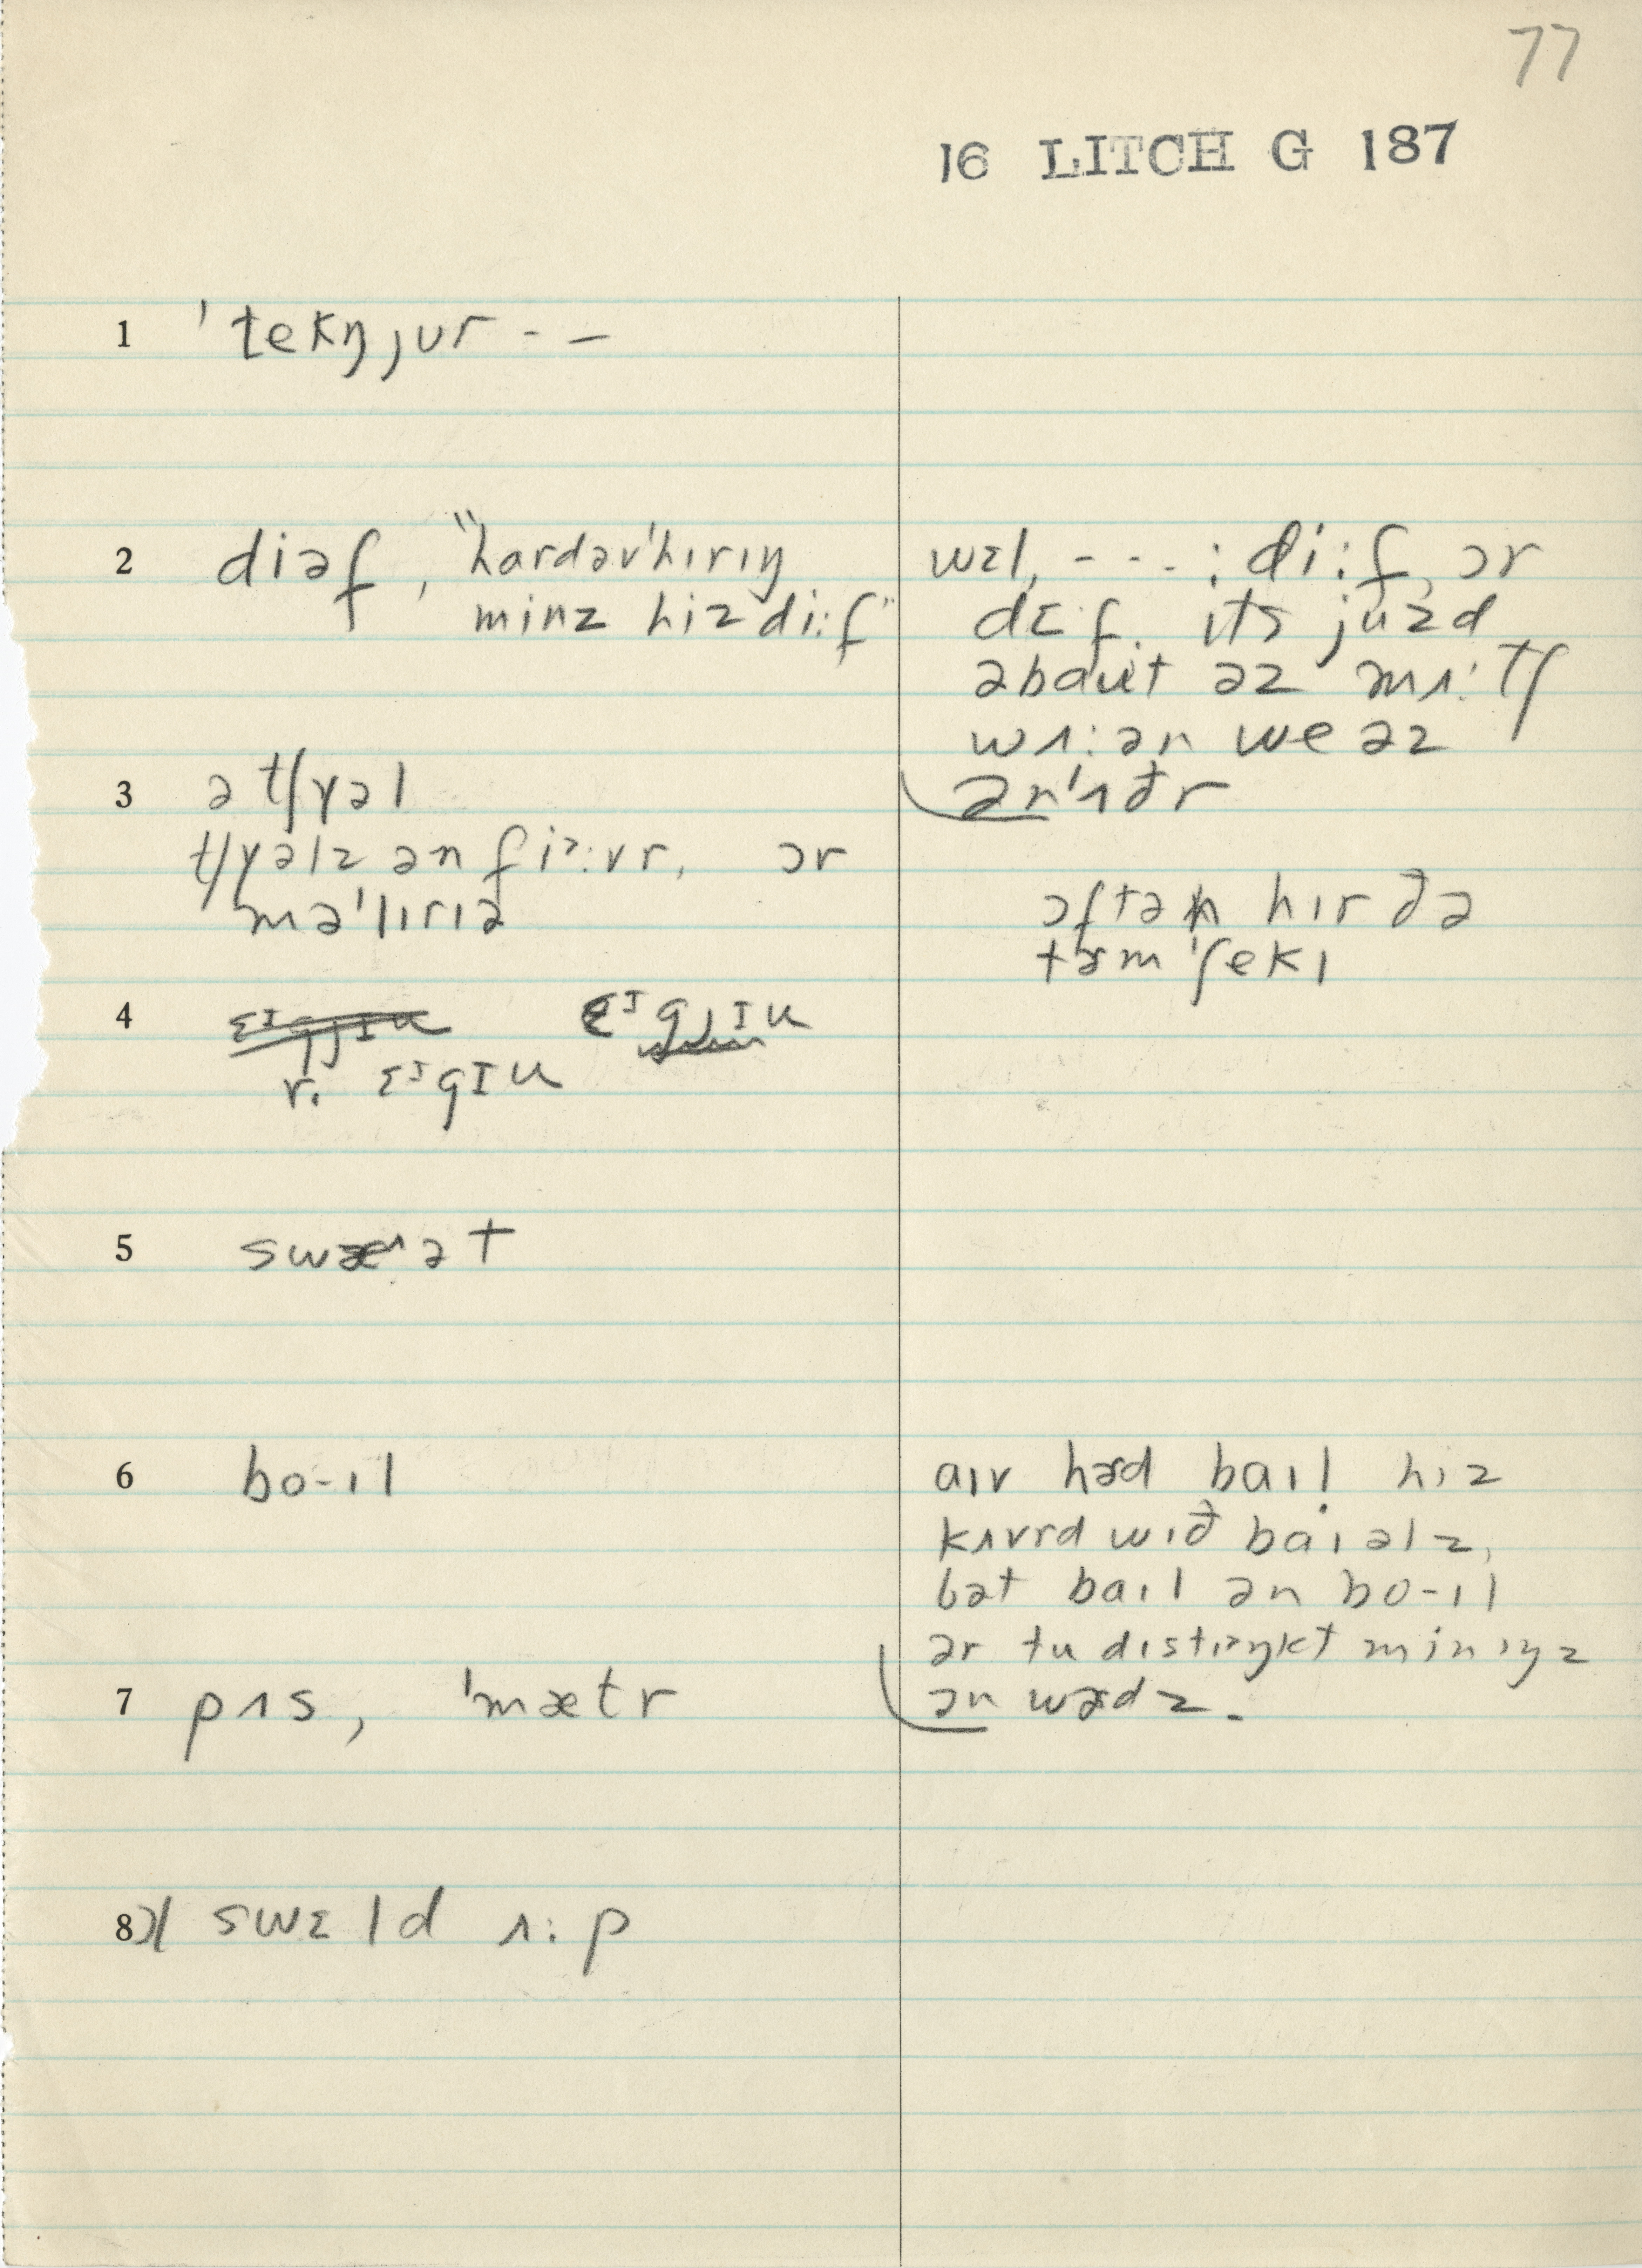 77
16 LITCH G 187
1 ˈtekŋjʊr - –
2 diəf, "hardəvˈhɪrɪŋ
minz hiz di:f"
wɛl, - - - : di:f, ɔr
dɛf. ɪts juzd
əbaʊt əz mʌ:tʃ
wʌ:ən we əz
ənˈʌðr
3 ə tʃɤəl
tʃɤəlz ən fi>:vr, ɔr
məˈlɪrɪə
ɔftən hɪr ðə
tɜm ˈʃekɪ
4
r. ɛᶦgɪu
5
6 bo-ɪl
aɪv hɜd baɪl hɪz
kʌvrd wɪð baɪəlz,
bət baɪl ən bo-ɪl
ər tu dɪstɪ>ŋkt minɪŋz
ən wɜdz.
7 pʌs, ˈmætr
8 swɛld ʌ:p